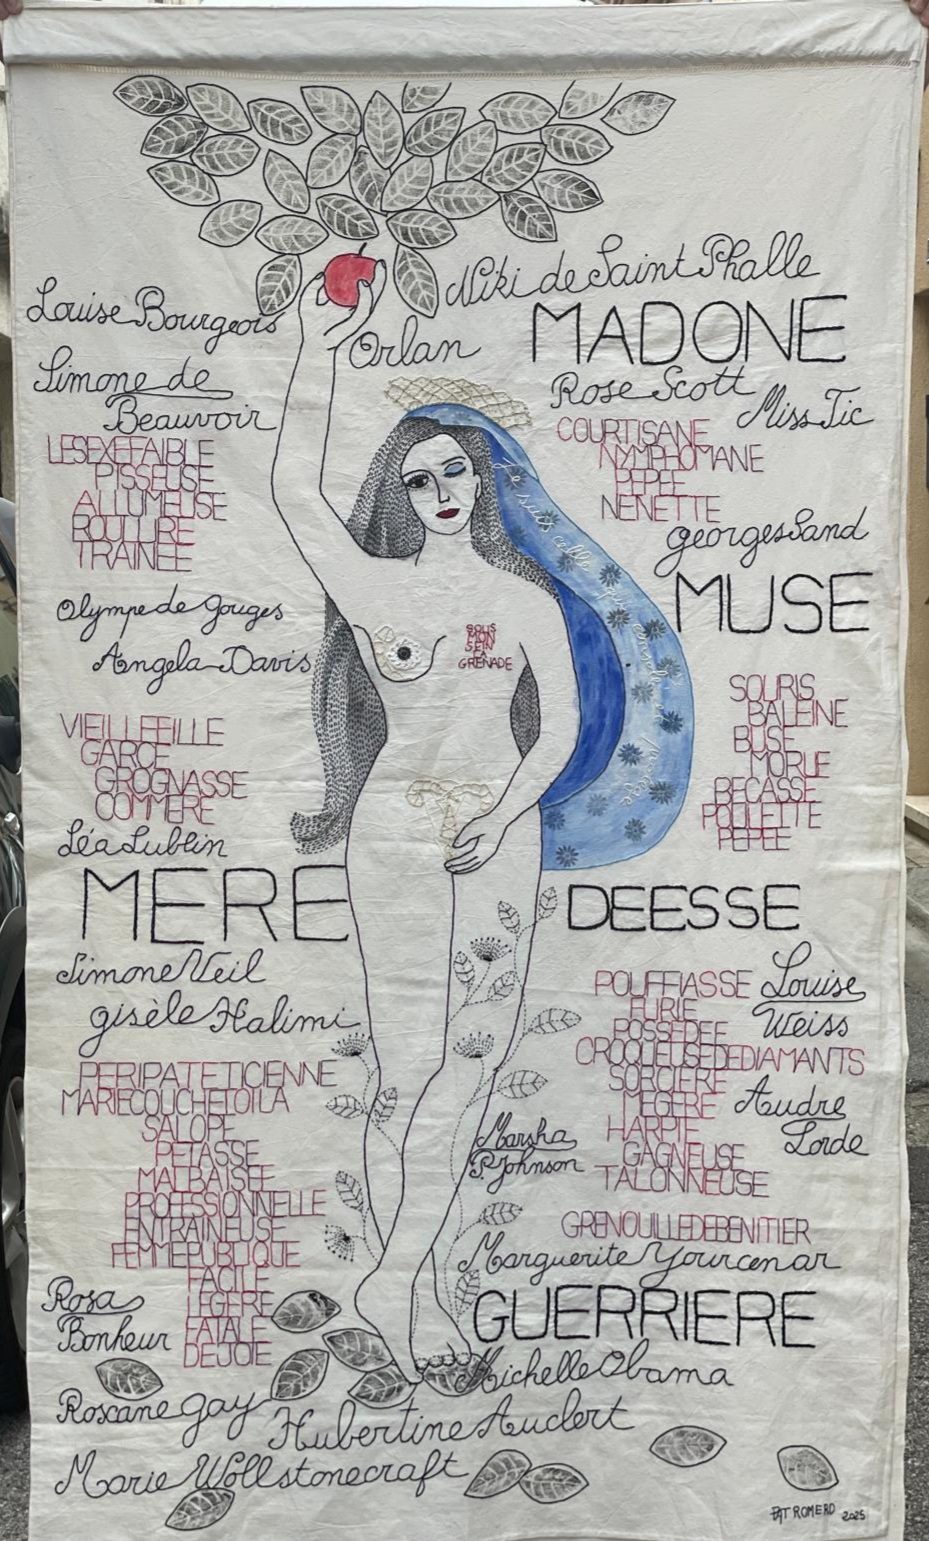 Niki de Saint Phalle
Louise Bourgeois
MADONE
Orlan
Simone de
Beauvoir
Rose Scott
Miss Tic
LESEXEFAIBLE
PISSEUSE
ALLUMEUSE
ROULURE
TRAINEE
COURTISANE
NYMPHOMANE
PEPEE
NENETTE
georges Sand
Je suis celle qui
MUSE
Olympe de gouges
Angela Davis
SOUS
MON
SEIN
LA
GRENADE
SOURIS
BALEINE
BUSE
MORUE
BECASSE
POULETTE
PEPEE
VIEILLEFILLE
GARCE
GROGNASSE
COMMERE
Léa Lublin
MERE
DEESSE
Simone Veil
gisèle Halimi
POUFFIASSE
FURIE
POSSEDEE
CROQUEUSEDEDIAMANTS
SORCIERE
MEGERE
HARPIE
GAGNEUSE
TALONNEUSE
Louise
Weiss
Audre
Lorde
PERIPATETICIENNE
MARIECOUCHETOILA
SALOPE
PETASSE
MALBAISEE
PROFESSIONNELLE
ENTRAINEUSE
FEMMEPUBLIQUE
FACILE
LEGERE
FATALE
DEJOIE
Marsha
P. Johnson
GRENOUILLEDEBENITIER
Marguerite Yourcenar
Rosa
Bonheur
GUERRIERE
Michelle Obama
Roxane gay
Hubertine Auclert
Marie Wollstonecraft
PAT ROMERO 2025